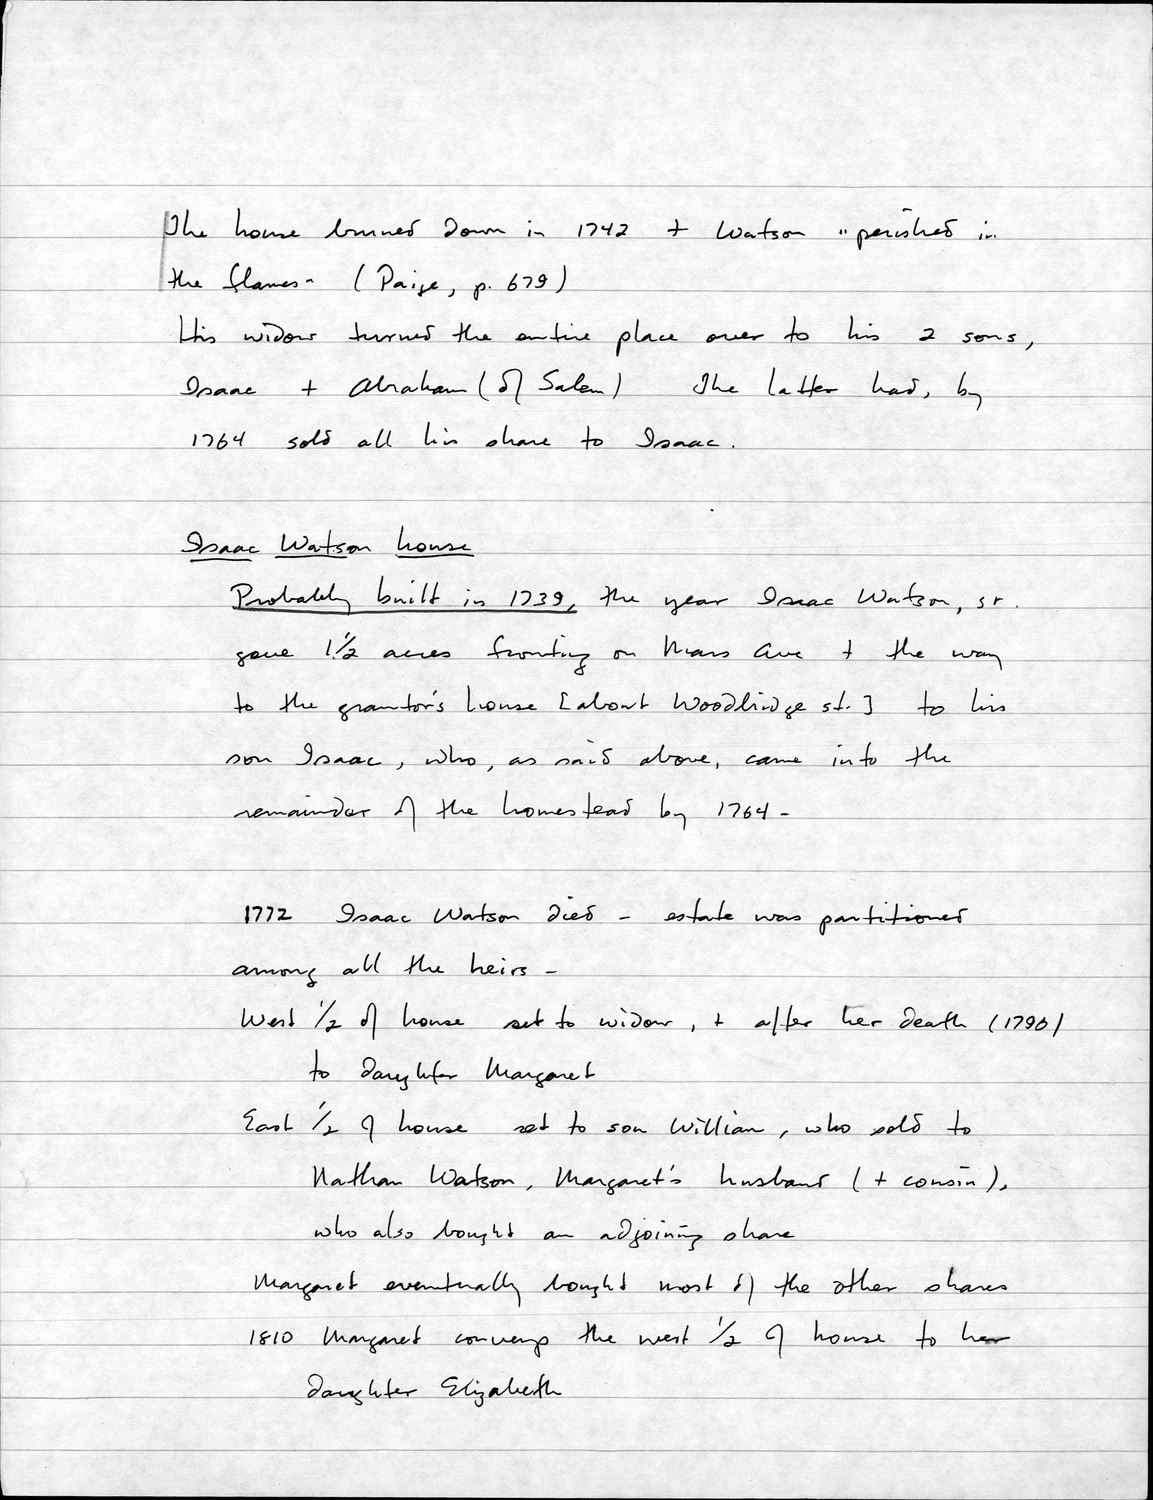 The house burned down in 1742 + Watson "perished in
the flames" (Paige, p. 679)
His widow turned the entire place over to his 2 sons,
Isaac + Abraham (of Salem) The latter had, by
1764 sold all his share to Isaac.
Isaac Watson house
Probably built in 1739, the year Isaac Watson, sr.
gave 1 1/2 acres fronting on Mass Ave + the way
to the grantor's house [about Woodbridge st.] to his
son Isaac, who, as said above, came into the
remainder of the homestead by 1764 -
1772 Isaac Watson died - estate was partitioned
among all the heirs -
West 1/2 of house set to widow, + after her death (1790)
to daughter Margaret
East 1/2 of house set to son William, who sold to
Nathan Watson, Margaret's husband (+ cousin),
who also bought an adjoining share
Margaret eventually bought most of the other shares
1810 Margaret conveys the west 1/2 of house to her
daughter Elizabeth